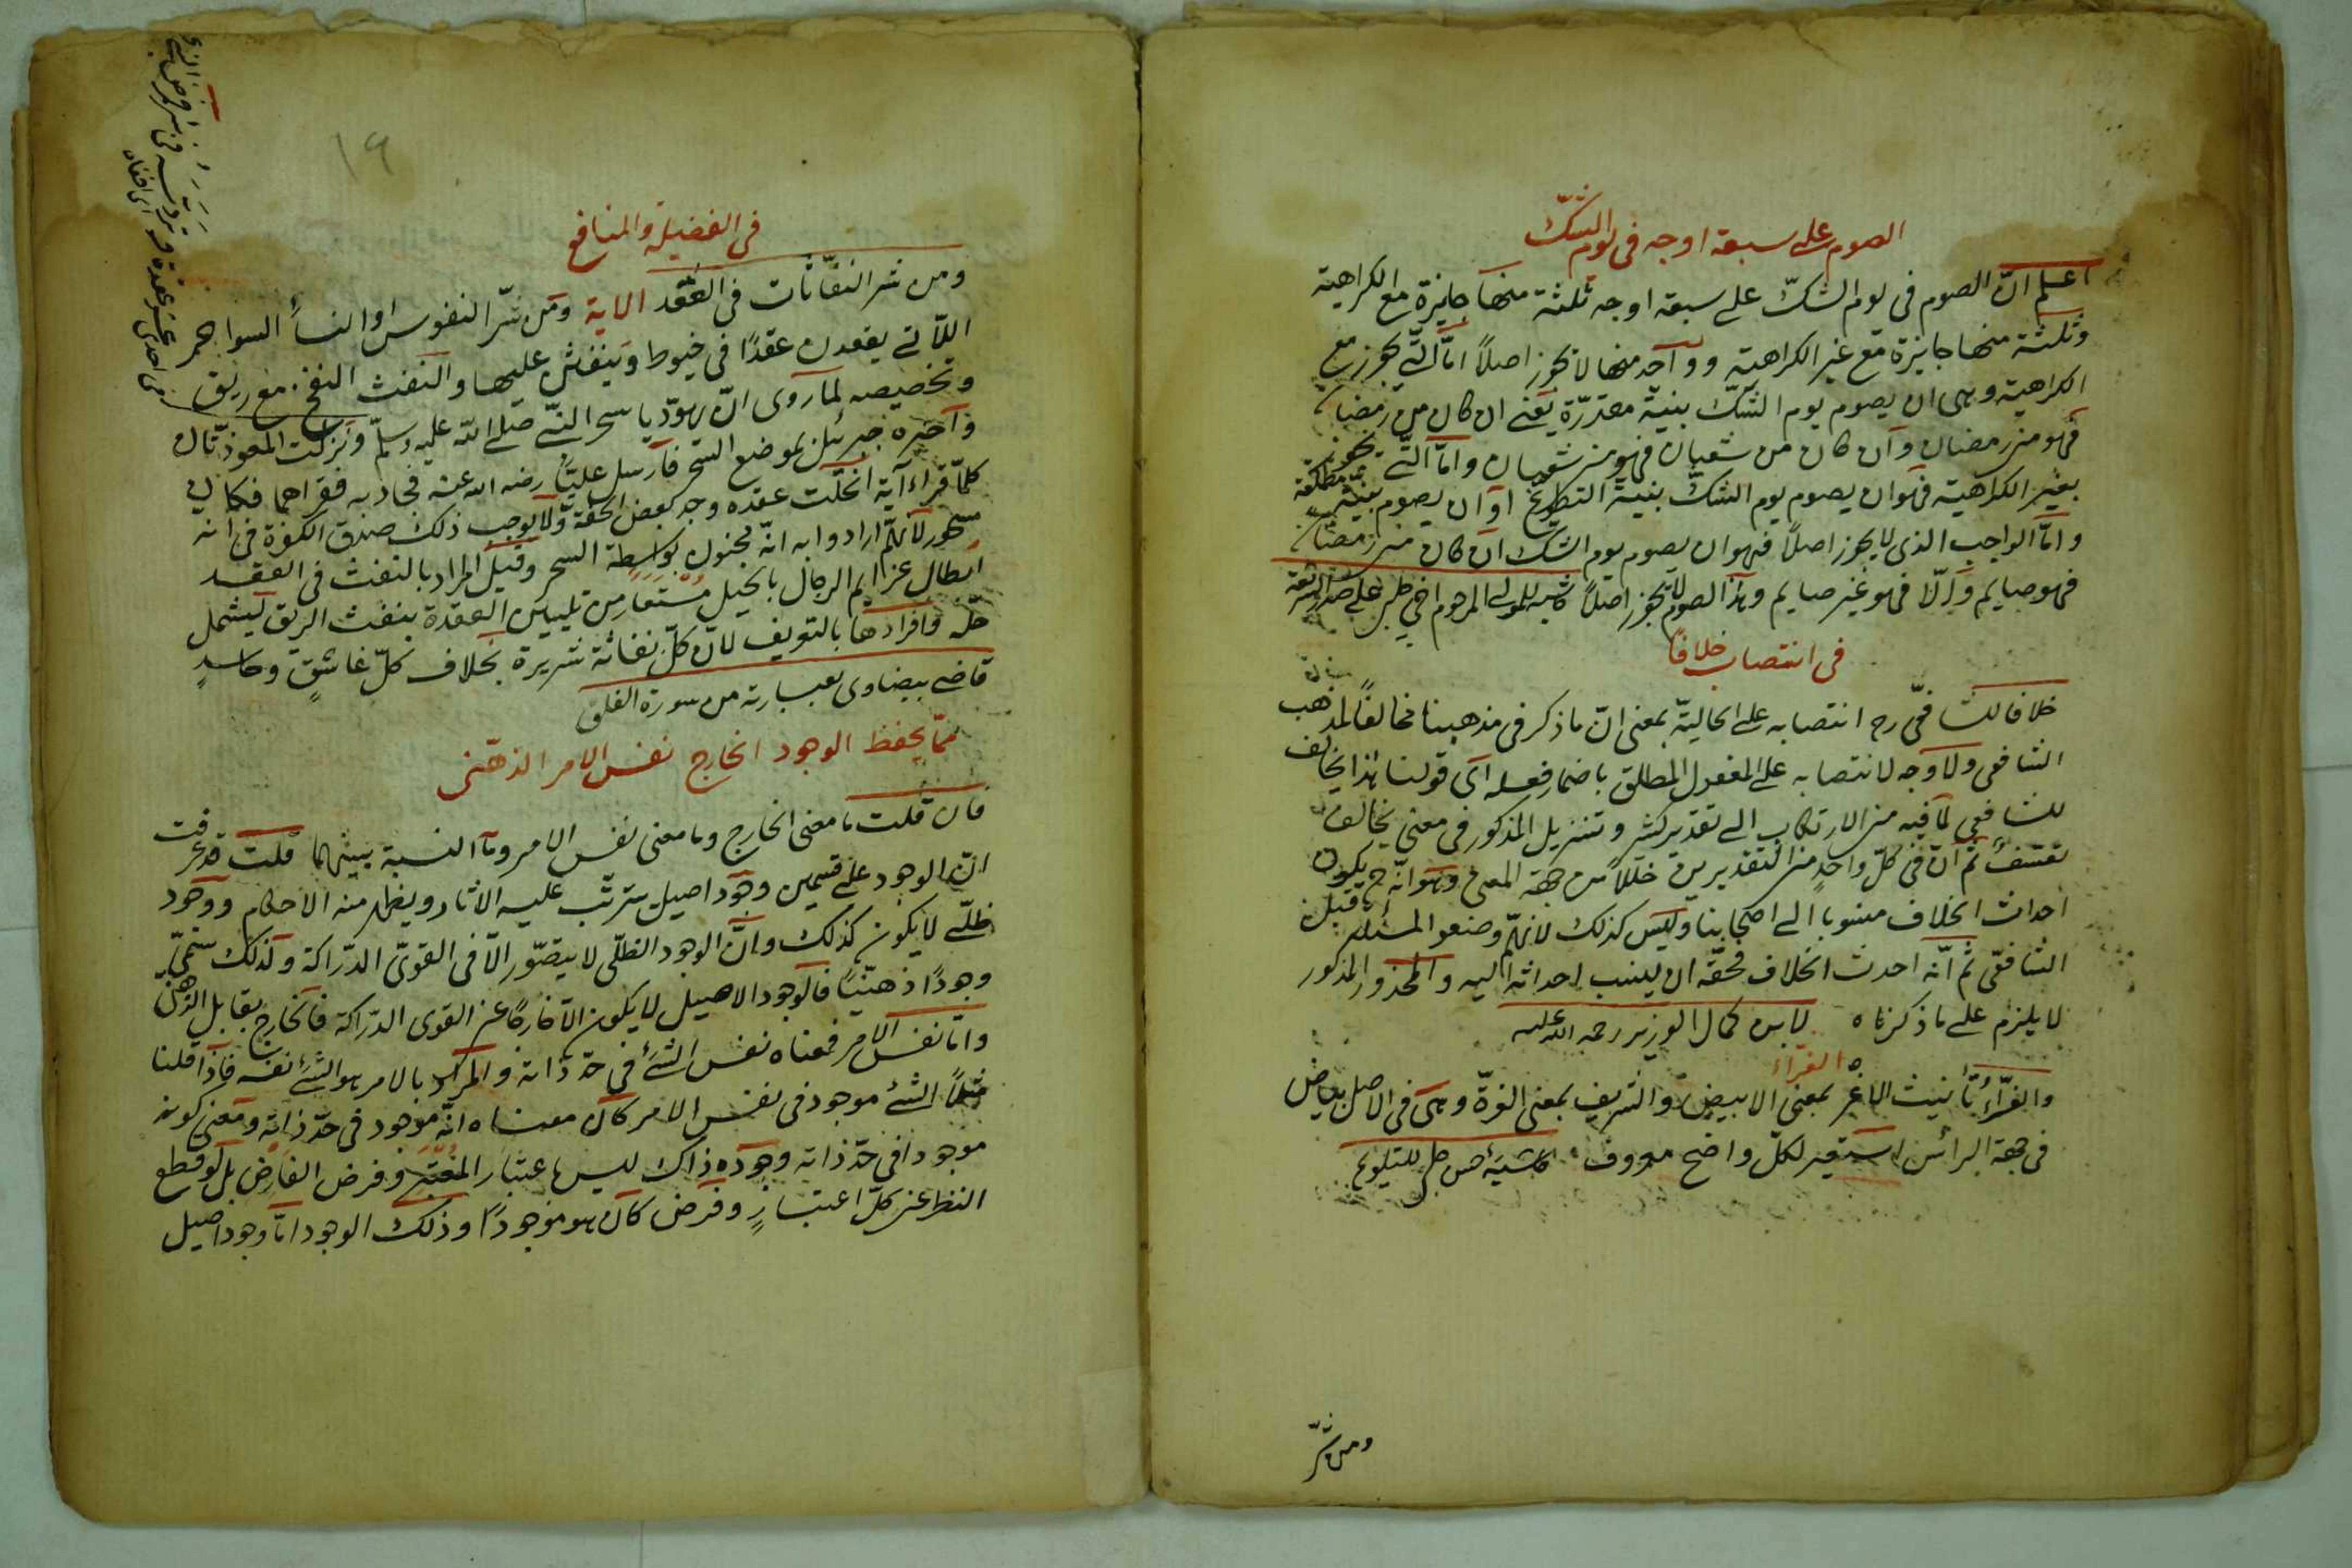 الصوم على سبعة اوجه فى يوم الشك
اعلم انّ الصوم فى يوم الشكّ على سبعة اوجه ثلثة منها جايزة مع الكراهية
وثلثة منها جايزة مع غير الكراهية وواحد منها لا يجوز اصلاً امّا التى يجوز مع
الكراهية وهى ان يصوم يوم الشكّ بنية مقدرّة يعنى ان كان من رمضان
فهو من رمضان وان كان من شعبان فهو من شعبان وامّا التى يجوز
بغير الكراهية فهو ان يصوم يوم الشكّ بنية التطوّع او ان يصوم بنية مطلقة
وامّا الواجب الذى لا يجوز اصلاً فهو ان يصوم يوم الشك ان كان من رمضان
فهو صايم وإلّا فهو غير صايم وهذا الصوم لا يجوز اصلاً حاشيه للمولى المرحوم اخى چلبى على صدر الشريعة
فى انتصاب خلافًا
خلافا للشافعّى رح انتصابه على الحاليّة بمعنى انّ ما ذكر فى مذهبنا مخالفًا لمذهب
الشافعى ولا وجه لانتصابه على المفعول المطلق باضمار فعله اى قولنا هذا يخالف
للشافعى لما فيه من الارتكاب الى تقدير كثير وتنزيل المذكور فى معنى يخالف
تعسّف ثم انّ فى كلّ واحدٍ من التقديرين خللاً من جهة المعنى وهو انّه ح يكون
احداث الخلاف منسوبا الى اصحابنا وليس كذلك لانهمّ وضعوا المسئلة قبل
الشافعّى ثم انّه احدث الخلاف فحقّه ان ينسب احداثه اليه والمحذور المذكور
لا يلزم على ما ذكرناه لابن كمال الوزير رحمه الله عليه
الغرّاء
والغرّاءُ تأنيث الاغر بمعنى الابيض والشريف بمعنى الغرّة وهى فى الاصل بياض
فى جهة الرأس استعير لكلّ واضح معروف حاشيهٔ حسن چلبى للتلويح
ومن شرّ
١٩
فى الفضيلة والمنافع
ومن شر النفّاثات فى العُقَد الاية ومن شرّ النفوس او النسأ السواحر
اللّاتى يعقدن عقدًا فى خيوط وينفثن عليها والنفث النفخ مع ريق
وتخصيصه لما روى انّ يهودّيا سحر النبّى صلى الله عليه وسلّم ونزلت المعوذّتان
واخبره جبرئيل بموضع السحر فارسل عليّا رضى الله عنه فجاء به فقراهما فكان
كلمّا قراء آية انحلّت عقده ووجد بعض الخفّة ولا يوجب ذلك صدق الكفرة فى انه
مسحور لأنهّم ارادوا به انّه مجنون بواسطة السحر وقيل المراد بالنفث فى العقد
ابطال عزايم الرجال بالحيل مُسْتعار من تليين العقدة بنفث الريق ليشمل
حلّه وافرادها بالتعريف لانّ كلّ نفاثة شريرة بخلاف كلّ غاسقٍ وحاسدٍ
قاضى بيضاوى بعبارته من سورة الفلق
ممّا يحفظ الوجود الخارج نفس الامر الذهّنى
فان قلت ما معنى الخارج وما معنى نفس الامر وما النسبة بينهما قلت قد عرفت
انّ الوجود على قسمين وجود اصيل يترتّب عليه الاثار ويظهر منه الاحكام ووجود
ظلّى لا يكون كذلك وانّ الوجود الظلّى لا يتصّور الاّ فى القوىّ الدّراكة ولذلك سمّى
وجودًا ذهنيًّا فالوجود الاصيل لا يكون الاّ خارجًا عن القوى الدّراكة فالخارج يقابل الذهن
وامّا نفس الامر فمعناه نفس الشئ فى حدّ ذاته والمراد بالامر هو الشئ نفسه فاذا قلنا
مثلًا الشئ موجود فى نفس الامر كان معناه انّه موجود فى حدّ ذاته ومعنى كونه
موجودا فى حدّ ذاته وجوده ذاك ليس باعتبار المعتبر وفرض الفارض بل لو قطع
النظر عن كلّ اعتبارٍ وفرض كان هو موجودًا وذلك الوجود امّا وجود اصيل
فى احدى عشر عقدة